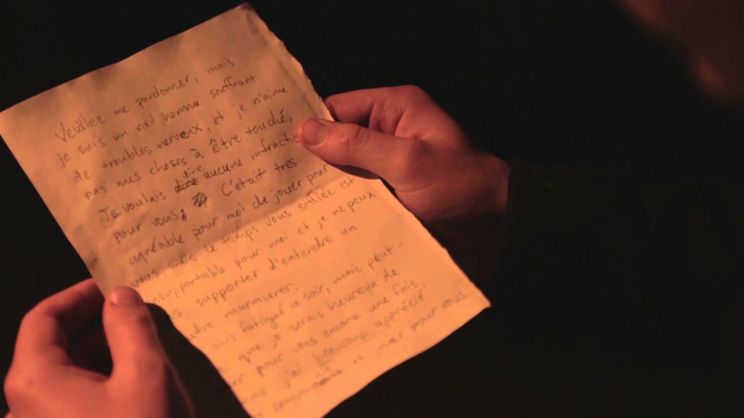 Veuillez me pardonner, mais
je suis un vieil homme souffrant
de troubles nerveux, et je n'aime
pas mes choses à être touché.
Je voulais dire aucune infraction
pour vous. C'était très
agréable pour moi de jouer pour
vous mais le temps vous sifflée est
insupportable pour moi et je ne peux
supporter d'entendre un
autre murmurer.
suis fatigué ce soir, mais peut-
que je serais heureux de
pour vous encore une fois,
j'ai beaucoup apprécié
et jouer pour vous